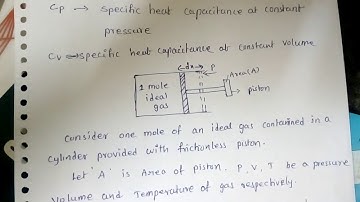 Cp → Specific heat Capacitance at Constant
pressure
Cv → Specific heat capacitance at constant volume
dx P
Area (A)
1 mole
ideal
gas
piston
Consider one mole of an ideal gas contained in a
cylinder provided with frictionless piston.
Let 'A' is Area of piston, P, V, T be a pressure
Volume and Temperature of gas respectively.